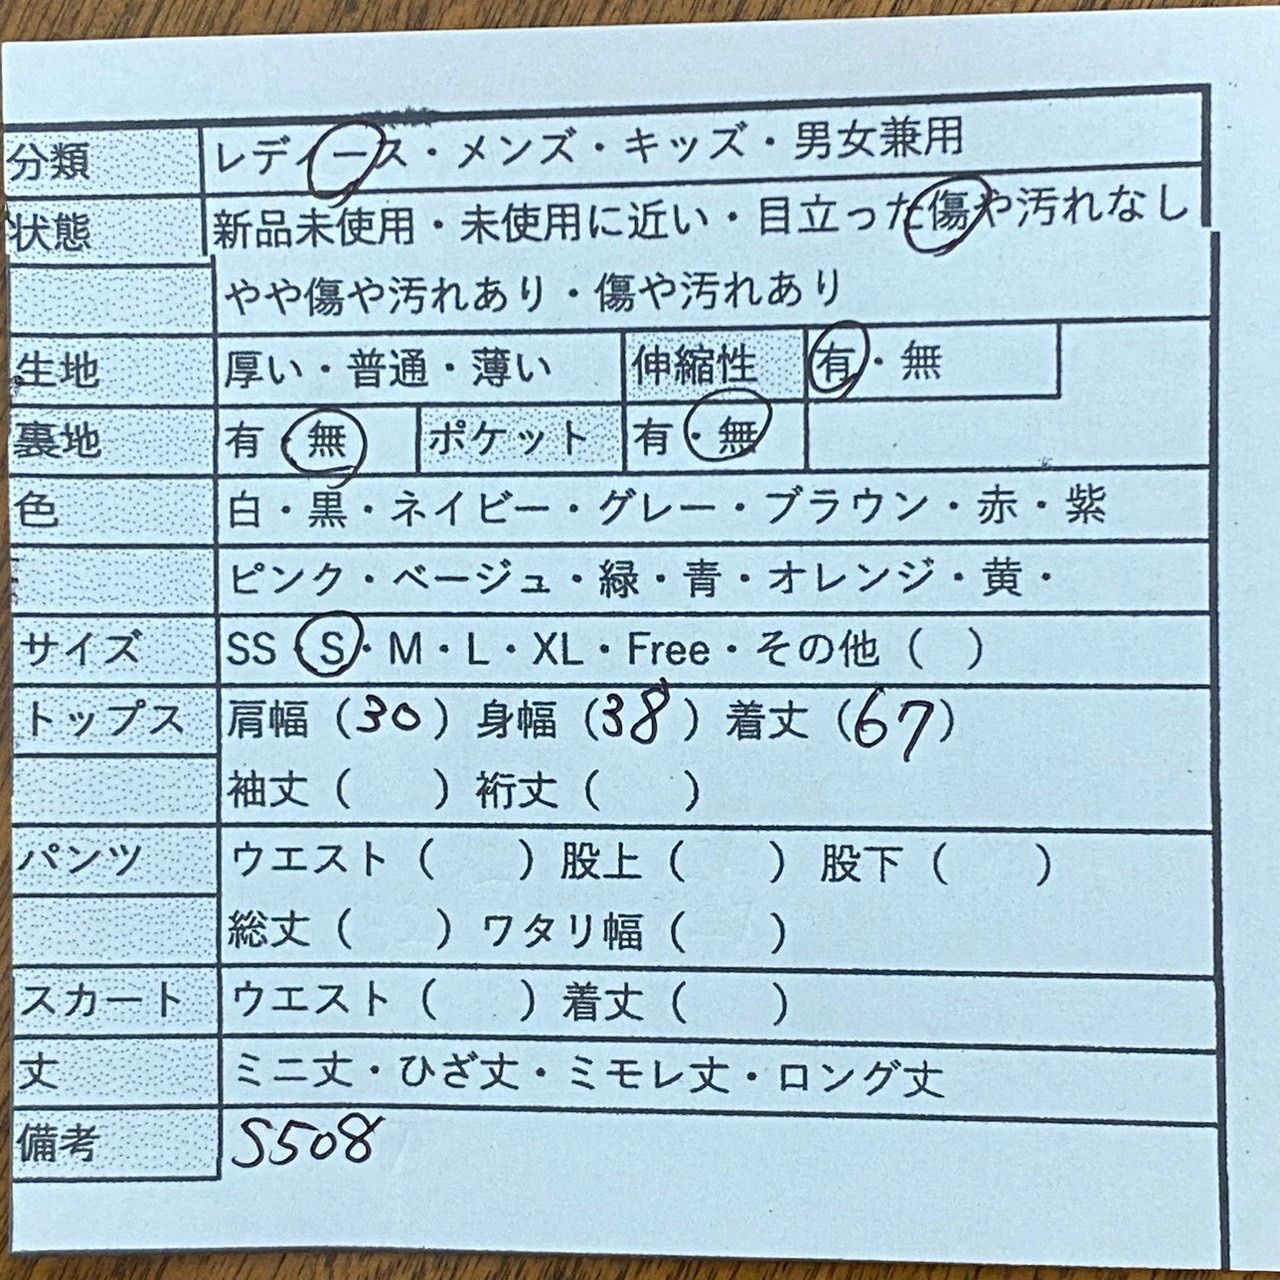 分類 レディース・メンズ・キッズ・男女兼用
状態 新品未使用・未使用に近い・目立った傷や汚れなし
やや傷や汚れあり・傷や汚れあり
生地 厚い・普通・薄い 伸縮性 有・無
裏地 有・無 ポケット 有・無
色 白・黒・ネイビー・グレー・ブラウン・赤・紫
ピンク・ベージュ・緑・青・オレンジ・黄・
サイズ SS・S・M・L・XL・Free・その他（ ）
トップス 肩幅（30）身幅（38）着丈（67）
袖丈（ ）裄丈（ ）
パンツ ウエスト（ ）股上（ ）股下（ ）
総丈（ ）ワタリ幅（ ）
スカート ウエスト（ ）着丈（ ）
丈 ミニ丈・ひざ丈・ミモレ丈・ロング丈
備考 S508